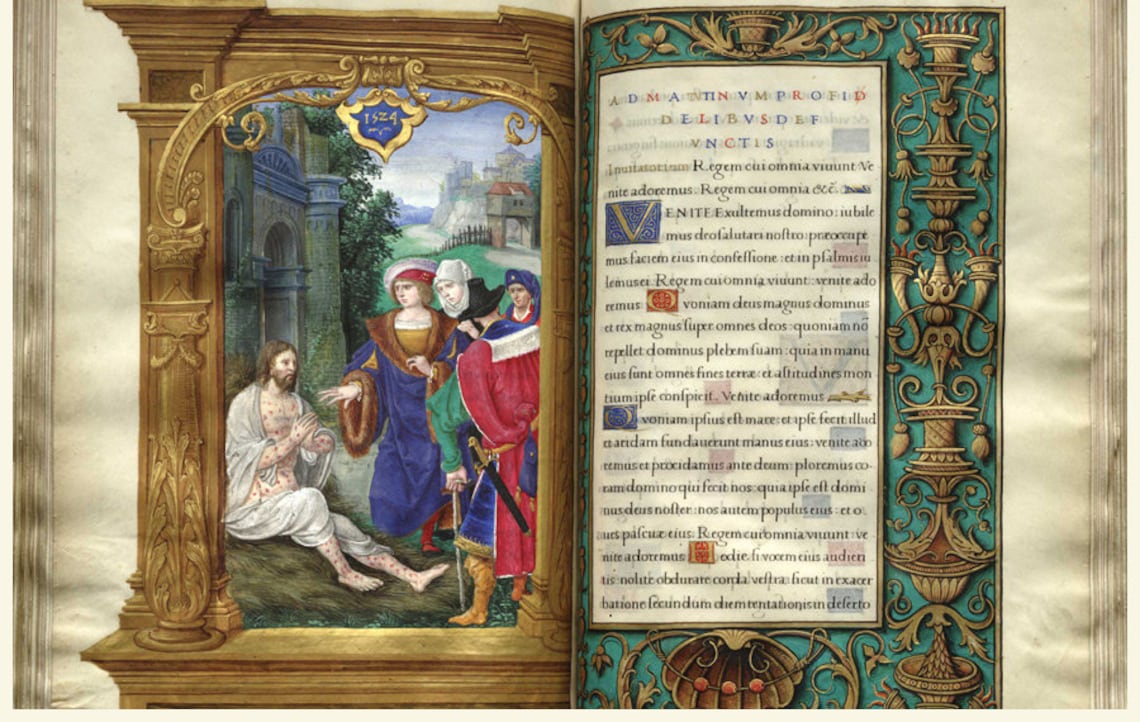 1524
AD MATVTINVM PRO FID
DELIBVS DEF
VNCTIS
Inuitatorium Regem cui omnia viuunt Ve
nite adoremus. Regem cui omnia &c̄.
VENITE Exultemus domino: iubile
mus deo salutari nostro: præoccupe
mus faciem eius in confessione: et in psalmis iu
lemus ei. Regem cui omnia viuunt: venite ado
remus Quoniam deus magnus dominus
et rex magnus super omnes deos: quoniam nō
repellet dominus plebem suam: quia in manu
eius sunt omnes fines terræ: et altitudines mon
tium ipse conspicit. Venite adoremus
Quoniam ipsius est mare: et ipse fecit illud
et aridam fundauerunt manus eius: venite ado
remus et procidamus ante deum: ploremus co-
ram domino qui fecit nos: quia ipse est domi
nus deus noster: nos autem populus eius: et o
ues pascuæ eius. Regem cui omnia viuunt: ve
nite adoremus Hodie si vocem eius audieri
tis: nolite obdurare corda vestra: sicut in exacer
batione secundum diem tentationis in deserto